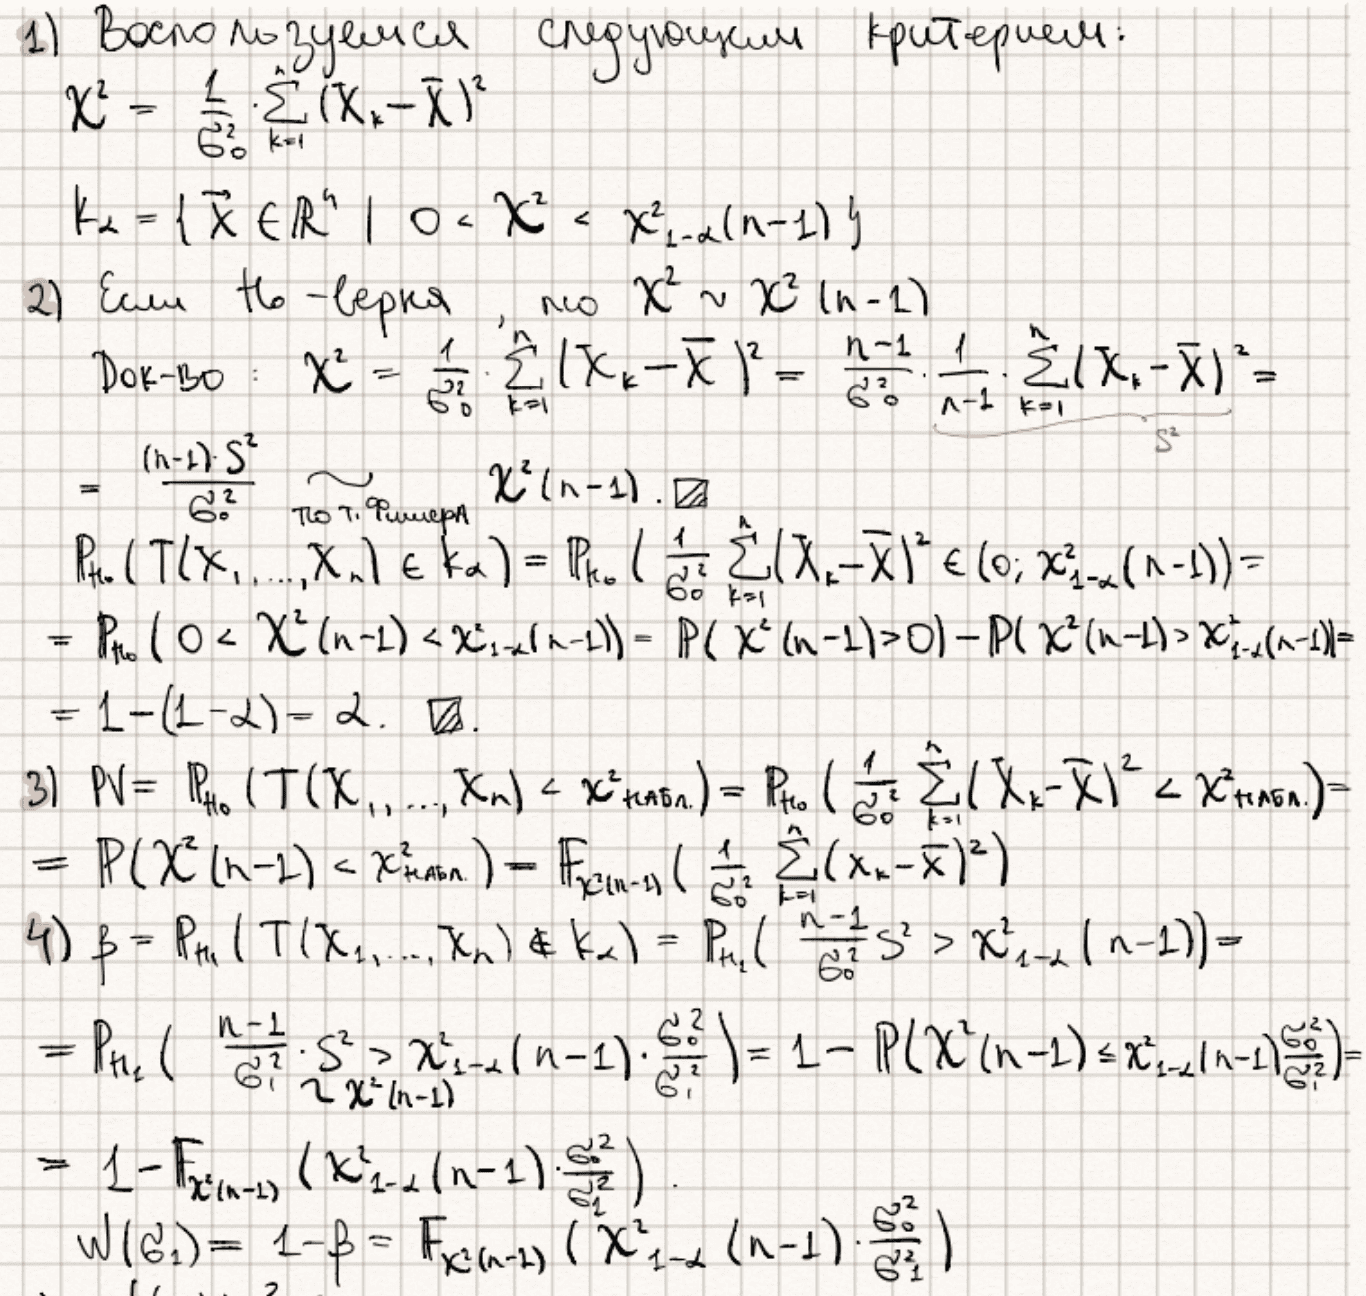 1) Воспользуемся следующим критерием:
χ² = 1/σ₀² · ∑ₖ₌₁ⁿ (Xₖ − X̄)²
K_α = { X⃗ ∈ ℝⁿ | 0 < χ² < χ²_{1−α}(n−1) }
2) Если H₀ - верна, то χ² ~ χ²(n−1)
Док-во: χ² = 1/σ₀² · ∑ₖ₌₁ⁿ (Xₖ − X̄)² = (n−1)/σ₀² · 1/(n−1) · ∑ₖ₌₁ⁿ (Xₖ − X̄)² =
S²
= (n−1)·S²/σ₀² ~ по т. Фишера χ²(n−1). ▨
P_{H₀}(T(X₁,...,Xₙ) ∈ K_α) = P_{H₀}( 1/σ₀² ∑ₖ₌₁ⁿ (Xₖ−X̄)² ∈ (0; χ²_{1−α}(n−1)) =
= P_{H₀}(0 < χ²(n−1) < χ²_{1−α}(n−1)) = P(χ²(n−1) > 0) − P(χ²(n−1) > χ²_{1−α}(n−1)) =
= 1−(1−α) = α. ▨.
3) PV = P_{H₀}(T(X₁,...,Xₙ) < χ²_{набл.}) = P_{H₀}( 1/σ₀² ∑ₖ₌₁ⁿ (Xₖ−X̄)² < χ²_{набл.}) =
= P(χ²(n−1) < χ²_{набл.}) = F_{χ²(n−1)}( 1/σ₀² ∑ₖ₌₁ⁿ (xₖ−x̄)²)
4) β = P_{H₁}(T(X₁,...,Xₙ) ∉ K_α) = P_{H₁}( (n−1)/σ₀² S² > χ²_{1−α}(n−1)) =
= P_{H₁}( (n−1)/σ₁² · S² > χ²_{1−α}(n−1) · σ₀²/σ₁² ) = 1 − P(χ²(n−1) ≤ χ²_{1−α}(n−1) σ₀²/σ₁²) =
~ χ²(n−1)
= 1 − F_{χ²(n−1)} (χ²_{1−α}(n−1) · σ₀²/σ₁²).
W(σ₁) = 1−β = F_{χ²(n−1)} (χ²_{1−α}(n−1) · σ₀²/σ₁²)